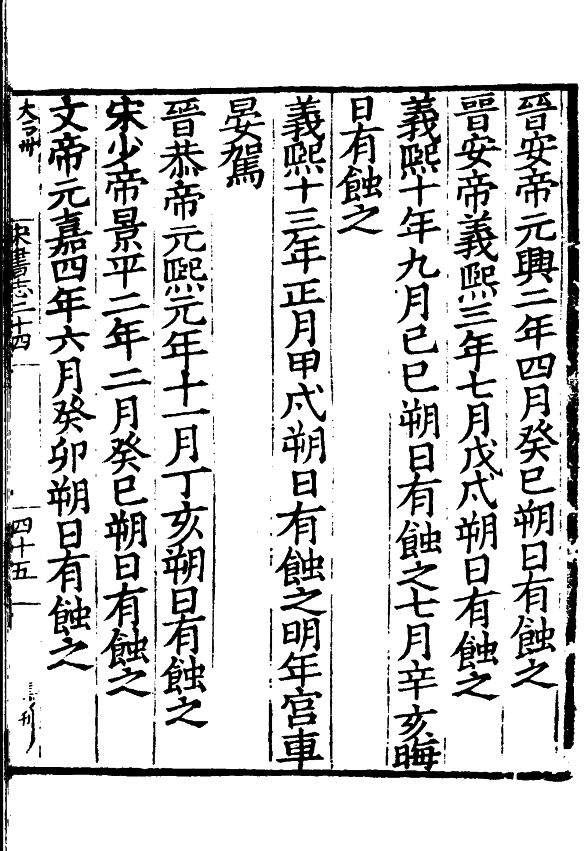 晉安帝元興二年四月癸巳朔日有蝕之
晉安帝義熙三年七月戊戌朔日有蝕之
義熙十年九月己巳朔日有蝕之七月辛亥晦
日有蝕之
義熙十三年正月甲戌朔日有蝕之明年宮車
晏駕
晉恭帝元熙元年十一月丁亥朔日有蝕之
宋少帝景平二年二月癸巳朔日有蝕之
文帝元嘉四年六月癸卯朔日有蝕之
宋書志二十四
四十五